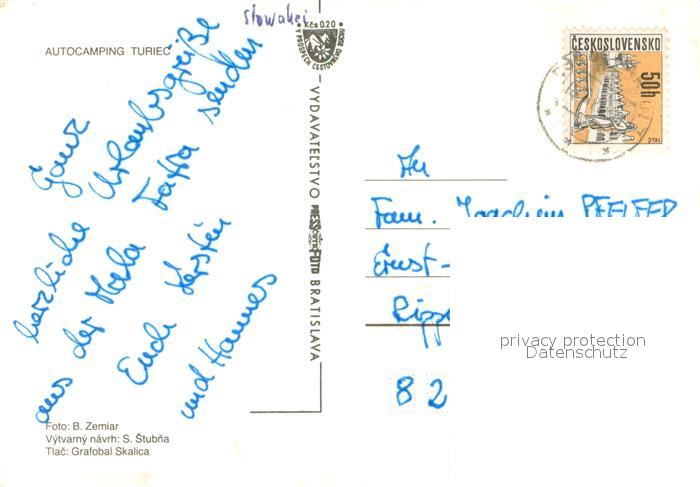 slowakei
AUTOCAMPING TURIEC
Kčs 0.20
V PROSPECH CESTOVNÉHO RUCHU
ČESKOSLOVENSKO
50h
TELČ
Ganz
herzliche Urlaubsgrüße
aus der Mala Tatra senden
Euch Kerstin
und Hannes
VYDAVATEĽSTVO PRESSFOTO BRATISLAVA
An
Fam. Joachim PFEIFER
Ernst-
Ripp
82
privacy protection
Datenschutz
Foto: B. Zemiar
Výtvarný návrh: S. Štubňa
Tlač: Grafobal Skalica